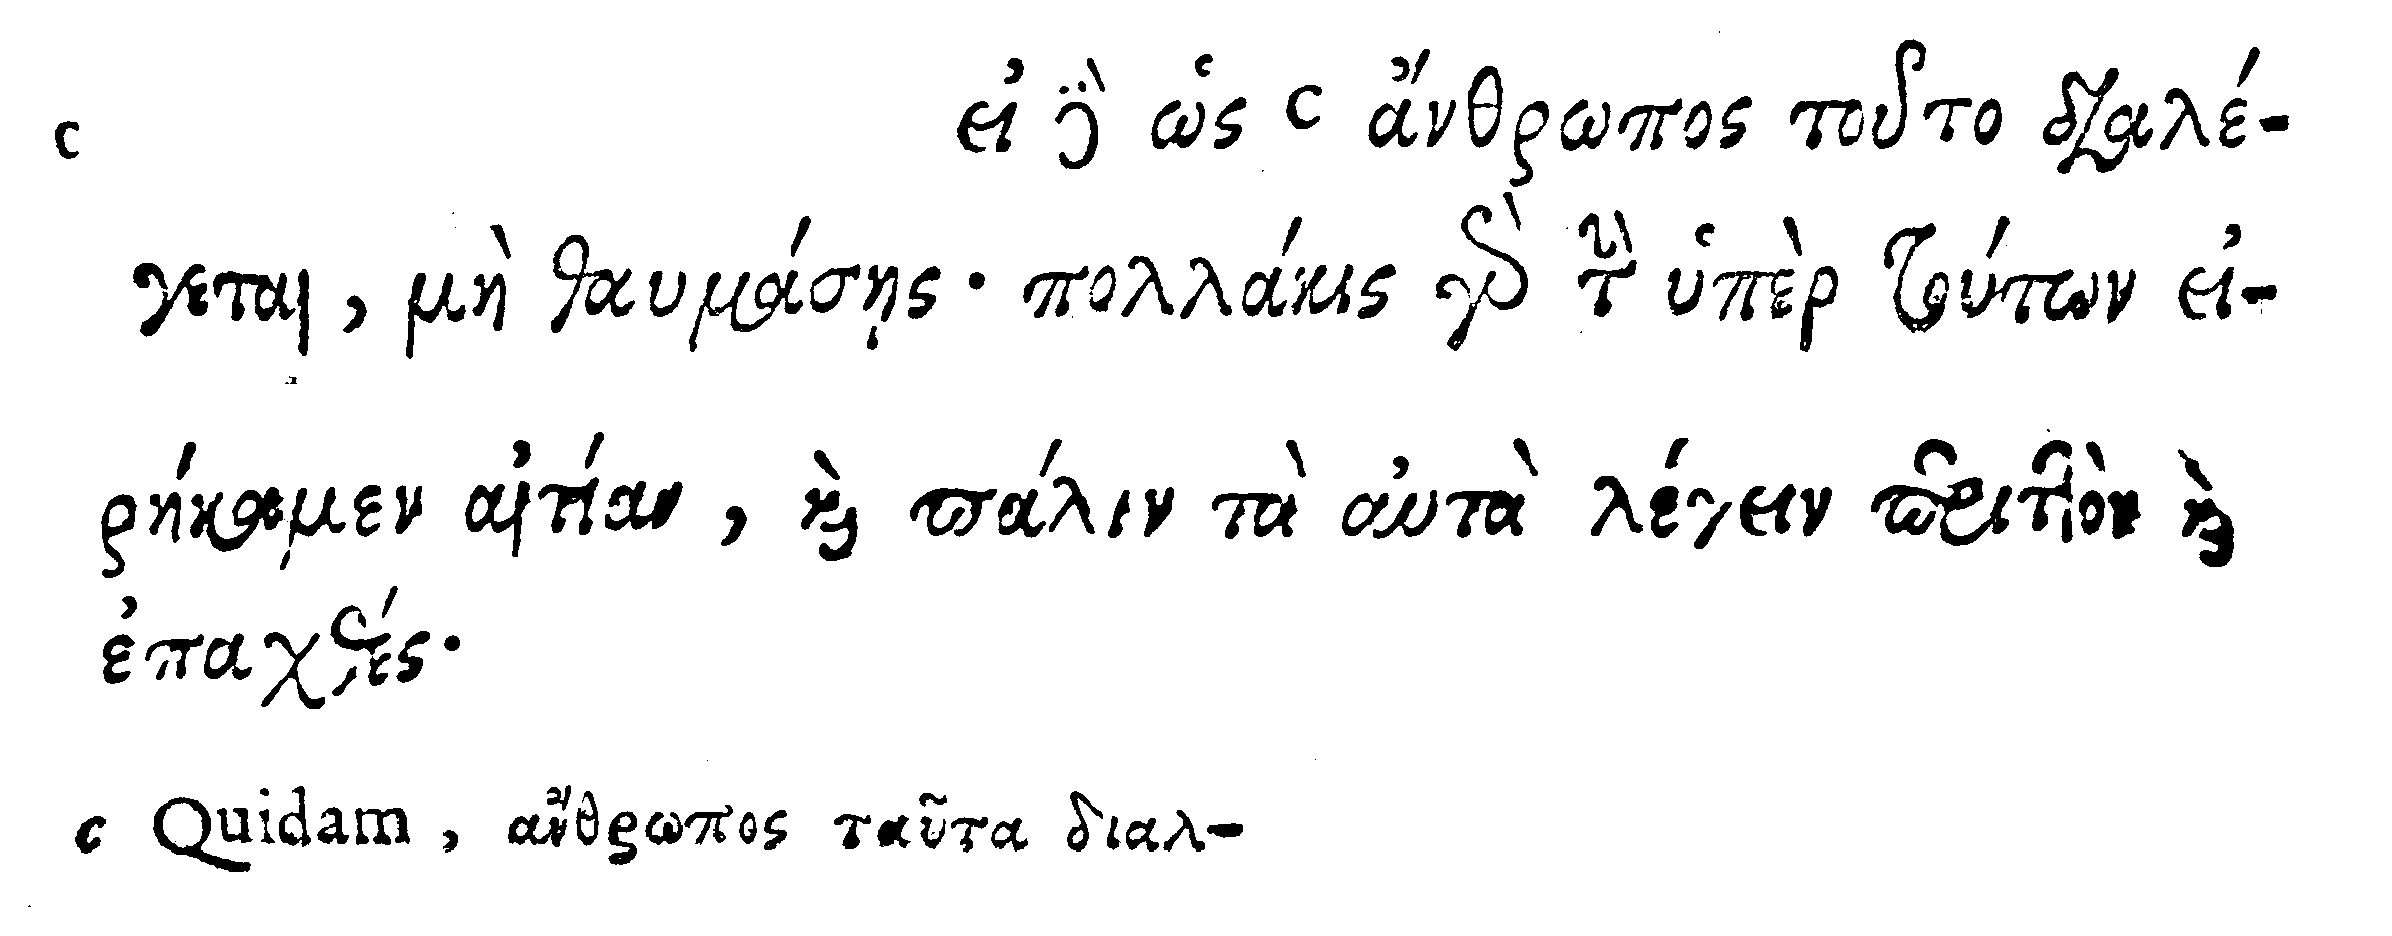 c εἰ δὲ ὡς c ἄνθρωπος τοῦτο διαλέ-
γεται, μὴ θαυμάσῃς· πολλάκις γὰρ τὴν ὑπὲρ τούτων εἰ-
ρήκαμεν αἰτίαν, καὶ πάλιν τὰ αὐτὰ λέγειν περιττὸν καὶ
ἐπαχθές·
c Quidam, ἄνθρωπος ταῦτα διαλ-